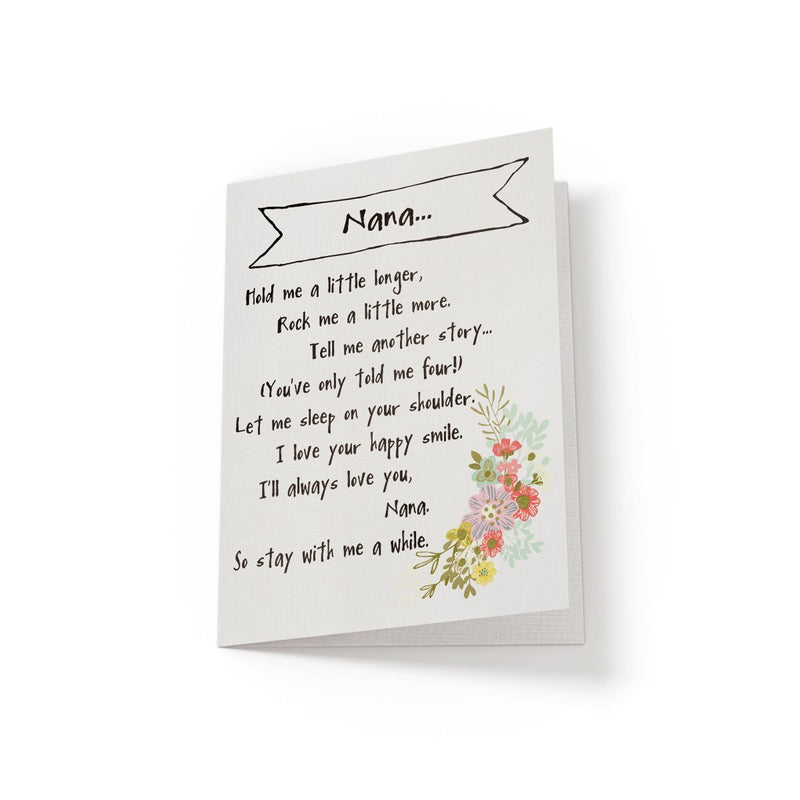 Nana...
Hold me a little longer,
Rock me a little more.
Tell me another story...
(You've only told me four!)
Let me sleep on your shoulder.
I love your happy smile.
I'll always love you,
Nana.
So stay with me a while.